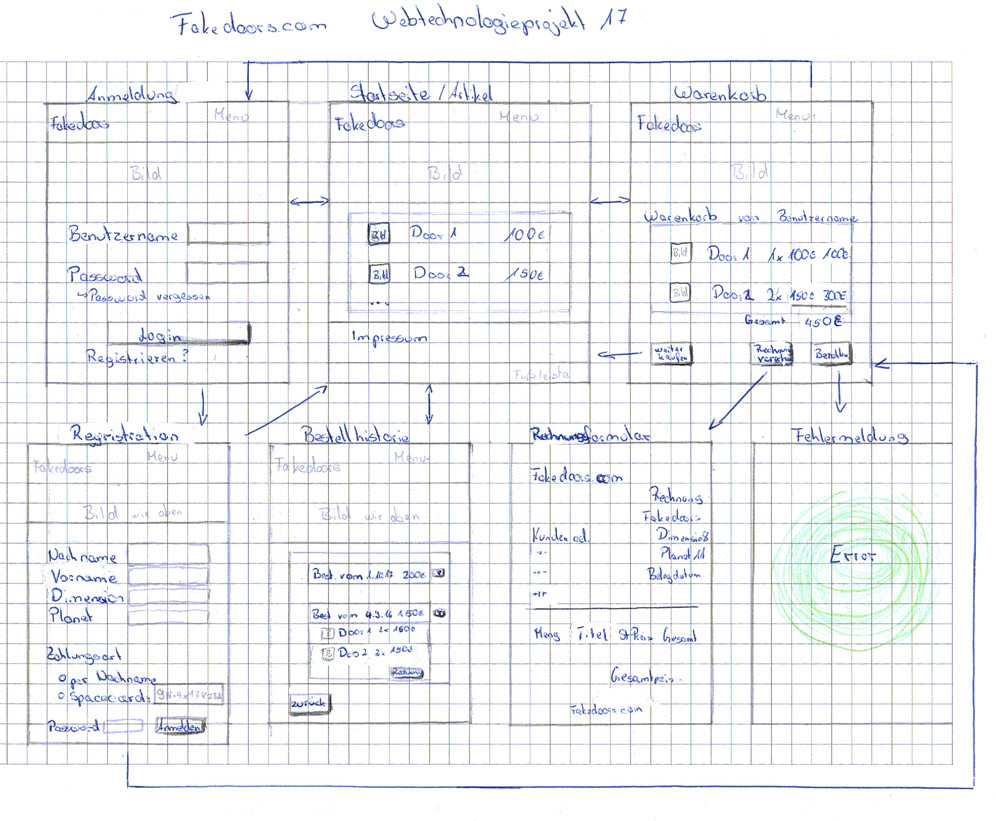 Fakedoors.com Webtechnologieprojekt 17
Anmeldung
Fakedoors Menu
Bild
Benutzername
Password
↳Password vergessen
Login
Registrieren?
Startseite / Artikel
Fakedoors Menu
Bild
Bild Door 1 100€
Bild Door 2 150€
...
Impressum
Fußleiste
Warenkorb
Fakedoors Menu
Bild
Warenkorb von Benutzername
Bild Door 1 1x 100€ 100€
Bild Door 2 2x 150€ 300€
Gesamt 450€
weiter kaufen
Bezahlen
Regristration
Fakedoors Menu
Bild wie oben
Nachname
Vorname
Dimension
Planet
Zahlungsart
o per Nachname
o Spacecard:
Password Anmelden
Bestellhistorie
Fakedoors Menu
Bild wie oben
Best. vom 1.10.17 200€
Best vom 4.9.16 150€
Door 1 2x 150€
Doo 2 2x 150€
Rechnung
zurück
Rechnungsformular
Fakedoors.com
Rechnung
Fakedoors
Kunden ad. Dimension8
Planet 11
Belegdatum
Meng Titel StPreis Gesamt
Gesamtpreis
Fakedoors.com
Fehlermeldung
Error